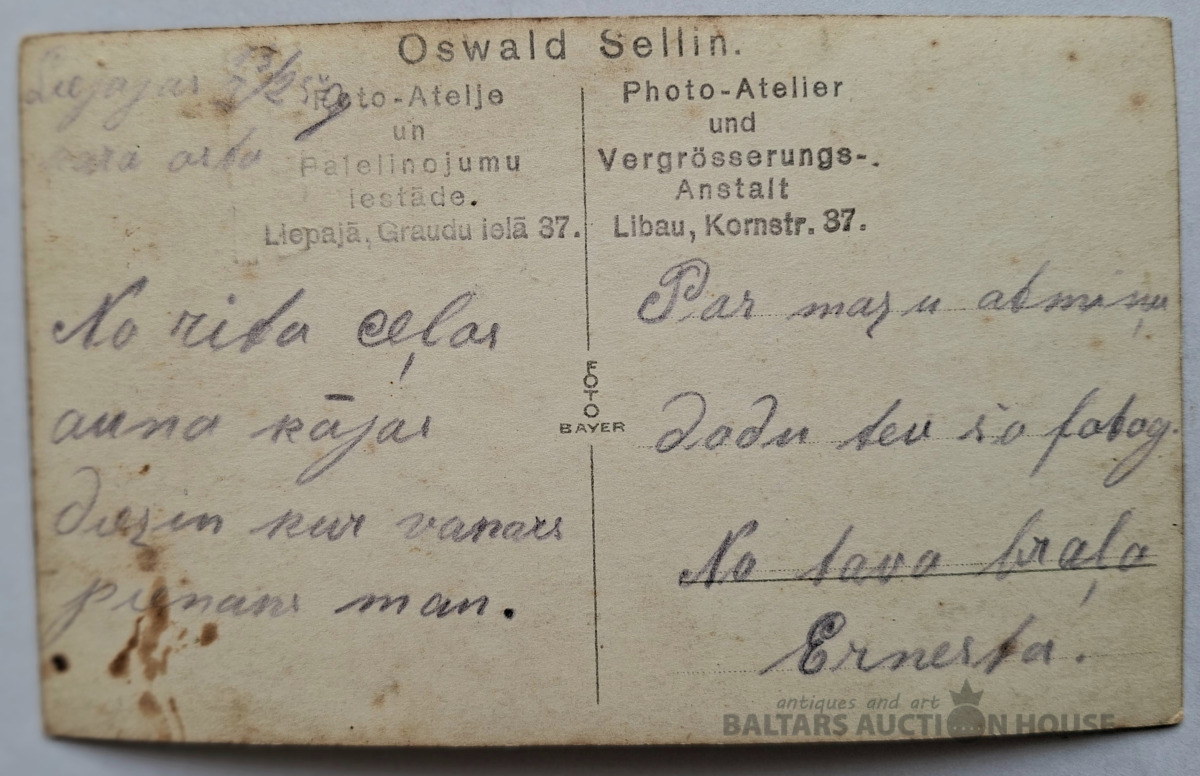 Oswald Sellin.
Foto-Atelje
un
Palelinojumu
iestāde.
Liepajā, Graudu ielā 37.
Photo-Atelier
und
Vergrösserungs-
Anstalt
Libau, Kornstr. 37.
Liejajas
kara osta
No rita ceļas
auna kājas
diezin kur vakars
pienans man.
FOTO
BAYER
Par mazu atmeņu
dodu tev šo fotog.
No tava braļa
Ernesta.
antiques and art
BALTARS AUCTION HOUSE